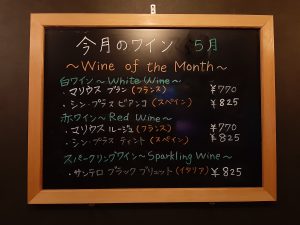 今月のワイン 5月
～Wine of the Month～
白ワイン～White Wine～
・マリウス ブラン(フランス) ¥770
・シン・プラス ビアンコ(スペイン) ¥825
赤ワイン～Red Wine～
・マリウス ルージュ(フランス) ¥770
・シン・プラス ティント(スペイン) ¥825
スパークリングワイン～Sparkling Wine～
・サンテロ ブラック ブリュット(イタリア) ¥825